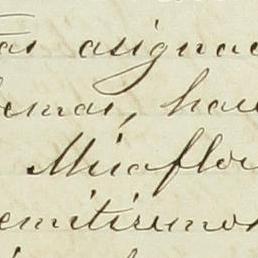 las asignac
emas, hau
Miraflor
emitissmos